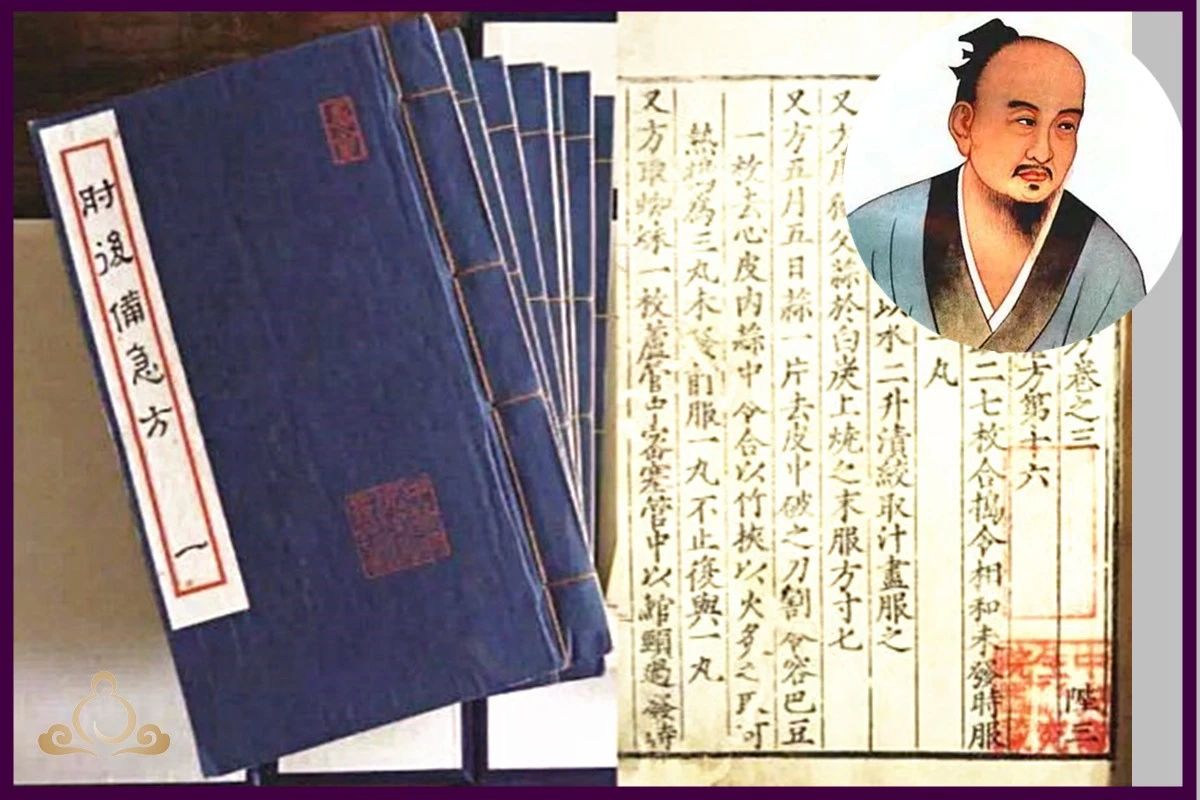 肘後備急方 一
方卷之三 陛三
方第十六
二七枚合搗令相和未發時服
丸
以水二升漬絞取汁盡服之
又方用父蒜於白炭上燒之末服方寸七
又方五月五日蒜一片去皮中破之刀割令容巴豆
一枚去心皮內蒜中令合以竹挾以火炙之取可
熱搗爲三丸未發前服一丸不止復與一丸
又方取蜘蛛一枚蘆管中密塞管中以綰頸過發時